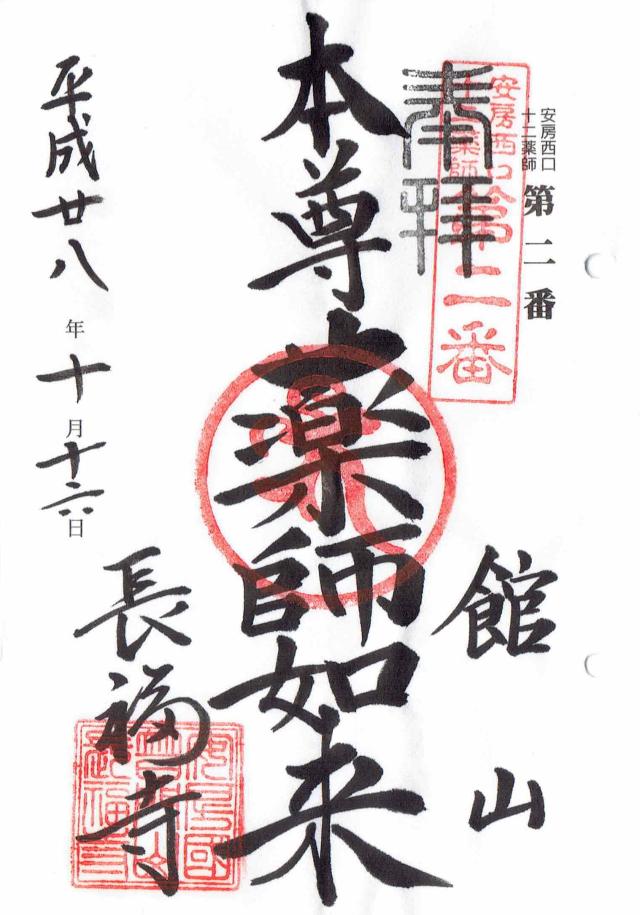 安房西口
十二薬師
第二番
奉拝
安房西口
十二薬師
第二番
本尊薬師如来
館山
平成廿八年十月十六日
長福寺